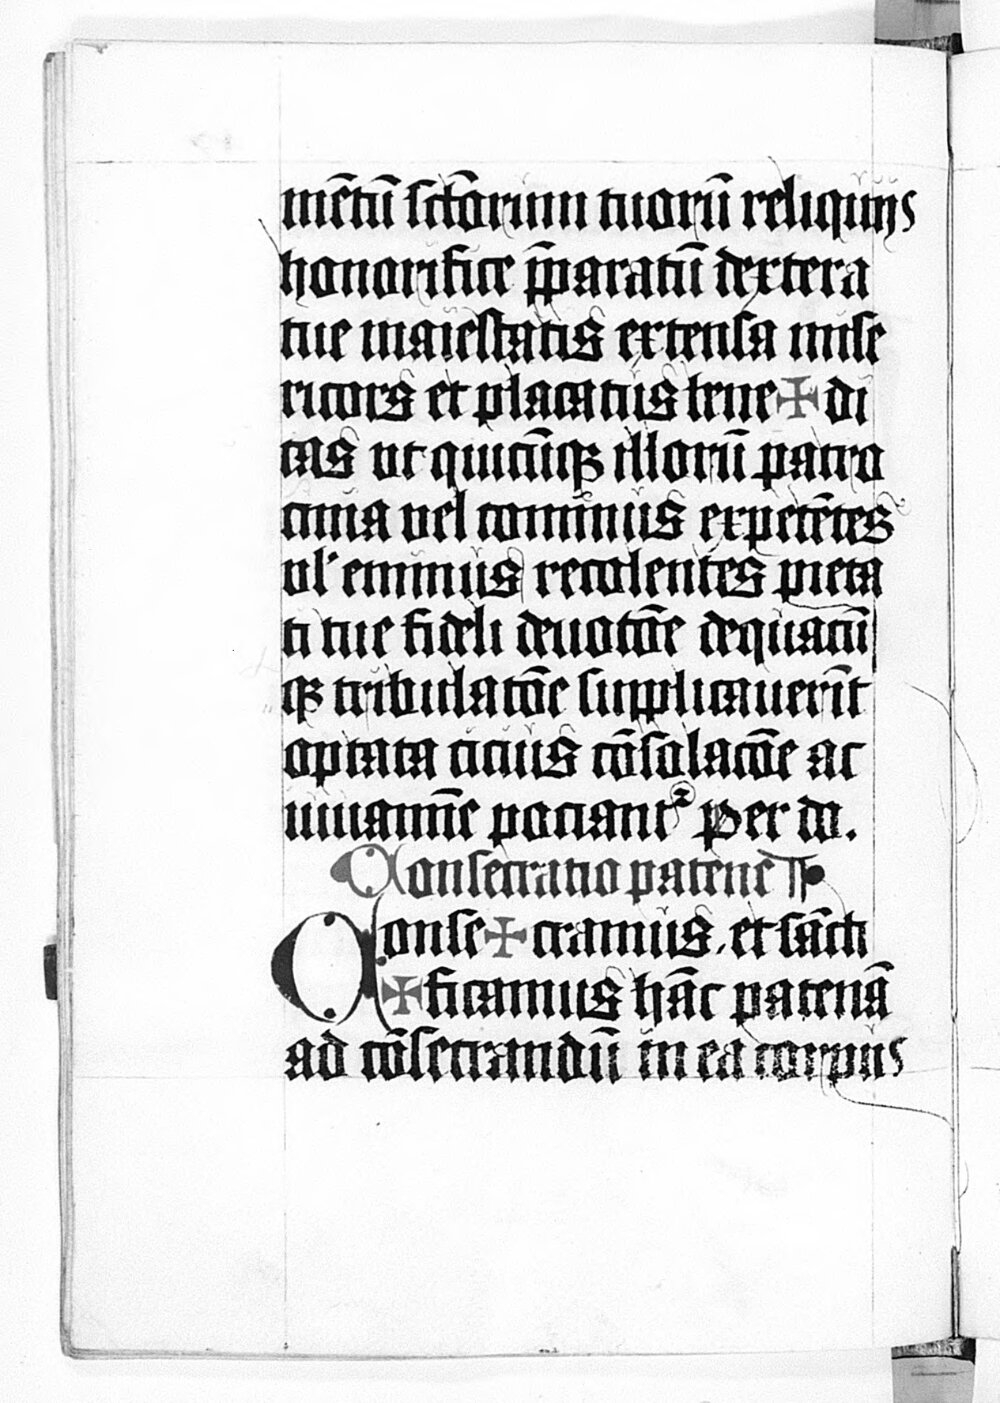 mẽtũ sctõrum tuorũ reliquijs
honorifice p̃paratũ dextera
tue maiestatis extensa mise
ricors et placatus bene ✠ di
cas ut quicũq illorũ patro
cinia vel cominus expetẽtes
vl' eminus recolentes pieta
ti tue fideli deuotõe dequacũ
q tribulatõe supplicauerĩt
optata cicius cõsolacõe ac
iuuamĩe pociant᷑ Per dn.
Consecratio patene
Conse ✠ cramus, et sãcti
✠ ficamus hãc patenã
ad cõsecrandũ in ea corpus